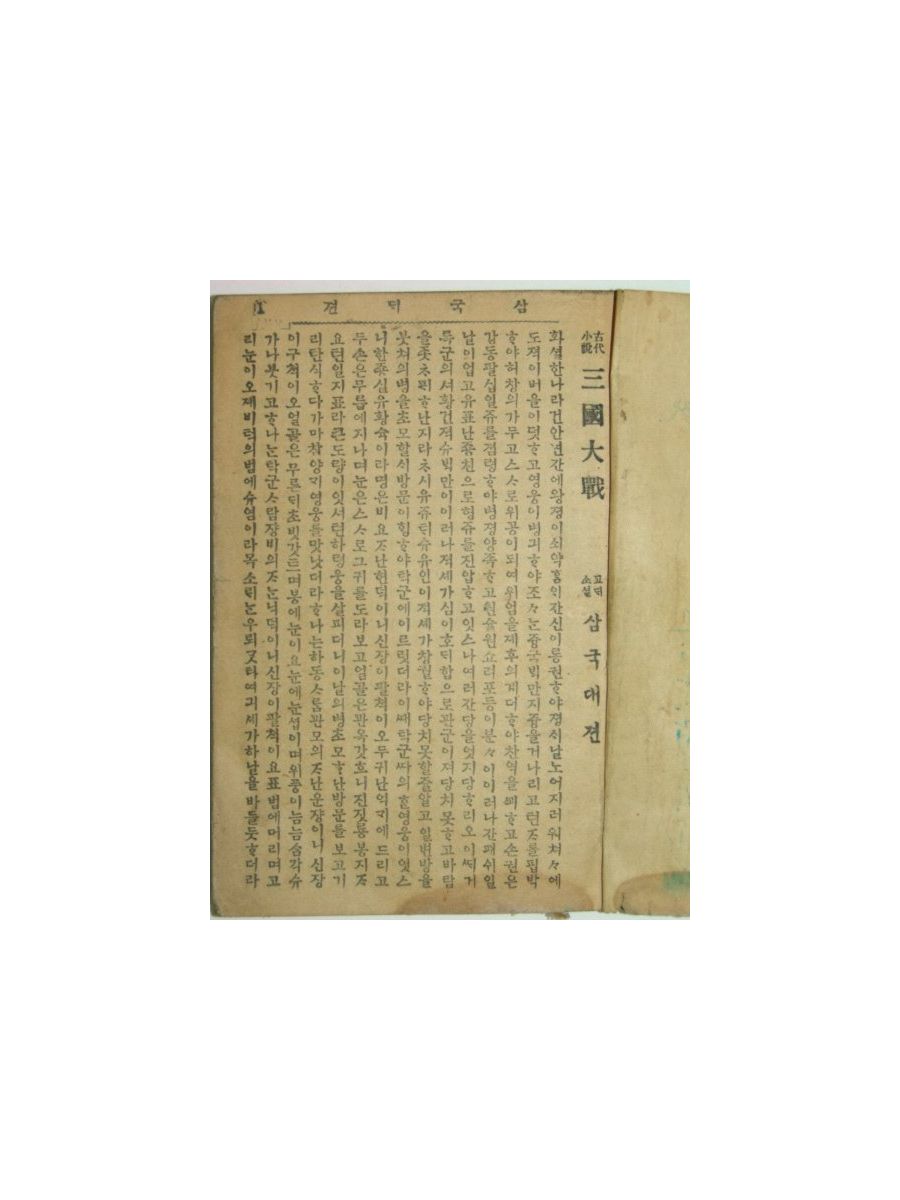 삼국ᄃᆡ젼 1
古代小說 三國大戰 고ᄃᆡ소셜 삼국대젼
화셜한나라건안년간에왕졍이쇠약간신이롱권ᄒᆞ야졍ᄉᆡ날노어지러워쳐々에
도젹이버을이덧ᄒᆞ고영웅이병긔ᄒᆞ야조々ᄂᆞᆫ즁국ᄇᆡᆨ만지즁을거나리고런ᄌᆞ를핍박
ᄒᆞ야허창의가두고스ᄉᆞ로위공이되여위엄을졔후의게더ᄒᆞ야찬역을ᄭᅬᄒᆞ고손권은
강동팔십일쥬를졈령ᄒᆞ야병졍양족ᄒᆞ고원슐원쇼려포등이분々이이러나간패쉬일
날이업고유표난종친으로형쥬를진압ᄒᆞ고잇스나여러간당을엇지당ᄒᆞ리오이ᄯᅴ거
록군의셔황건젹슈ᄇᆡᆨ만이이러나져셰가심이호ᄃᆡ합으로관군이져당치못ᄒᆞ고바람
을좃ᄎᆞᄑᆡᄒᆞ난지라ᄎᆞ시유쥬ᄐᆡ슈유인이젹셰가창궐ᄒᆞ야당치못할줄알고일변방을
붓쳐의병을초모할ᄉᆡ방문이힝ᄒᆞ야탁군에이르럿더라이ᄯᅢ탁군ᄯᅡ의ᄒᆞᆫ영웅이잇스
니한종실유황슉이라명은비요ᄌᆞ난현덕이니신장이팔쳑이오두귀난억ᄀᆡ에드리고
두손은무릅에지나며눈은스ᄉᆞ로그귀를도라보고얼골은관옥갓흐니진짓룡봉지ᄌᆞ
요련일지표라큰도량이잇셔련하령웅을살피더니이날의병초모ᄒᆞ난방문를보고기
리탄식ᄒᆞ다가마참양ᄀᆡ영웅를맛낫더라ᄒᆞ나는하동ᄉᆞ룸관모의ᄌᆞ난운쟝이니신장
이구쳑이오얼골은무른ᄃᆡ초빗갓흐며봉에눈이요눈에눈섭이며위풍이늠늠ᄉᆞᆷ각슈
가나붓기고ᄒᆞ나ᄂᆞᆫ탁군ᄉᆞ람쟝비의ᄌᆞᄂᆞᆫ닉덕이니신장이팔쳑이요표범에머리며고
리눈이오제비턱의범에슈염이라목소ᄅᆡᄂᆞᆫ우뢰又타여긔셰가하날을바들듯ᄒᆞ더라